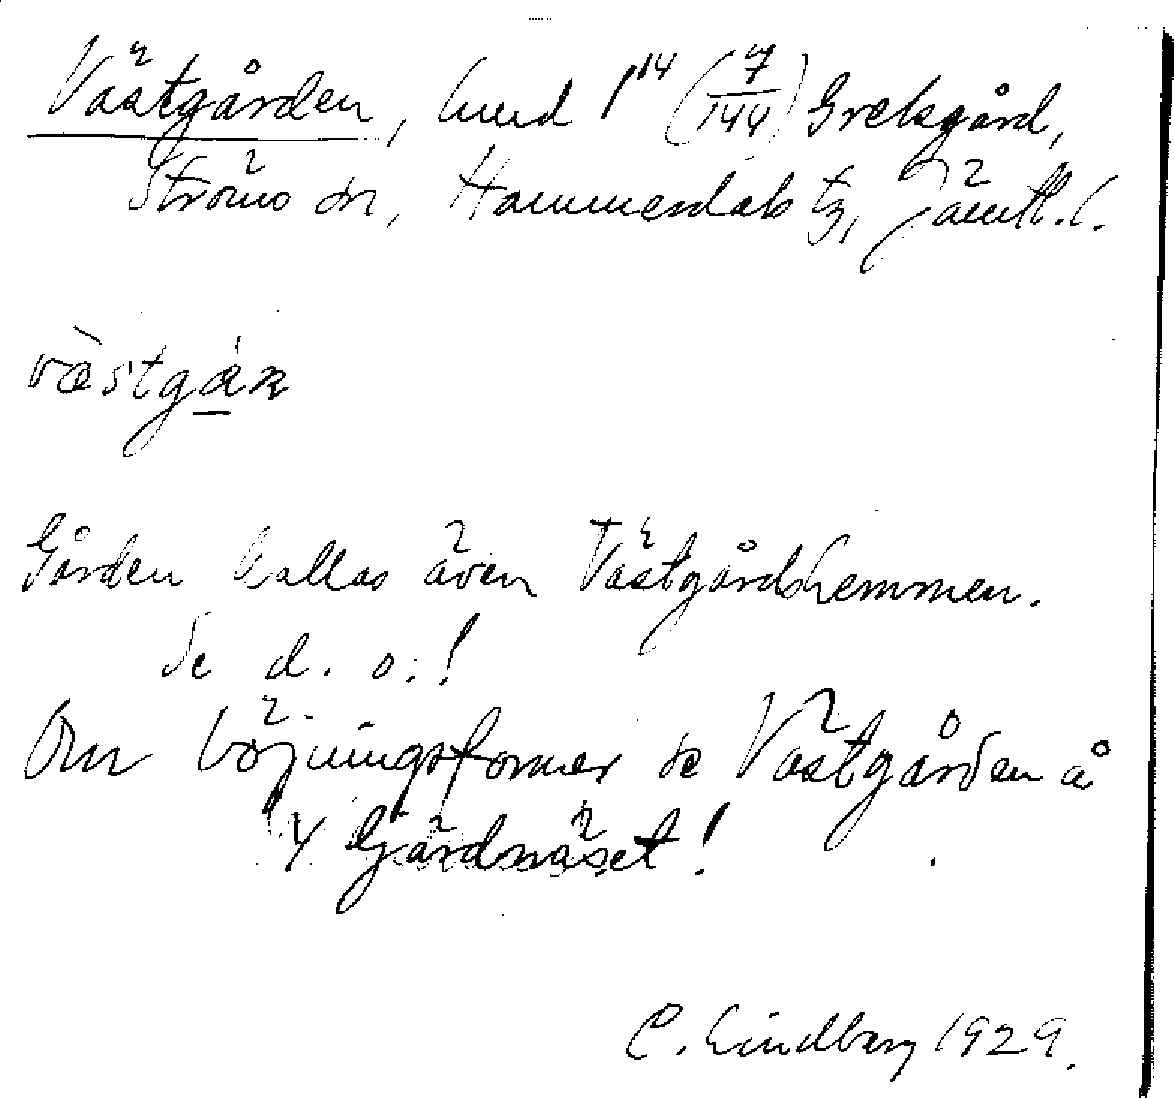 Västgården, hmd 1¹⁴ (7/144) Grelsgård,
Ströms sn, Hammerdals tg, Jämtl. l.
væ̀stgán
Gården kallas även Västgårdshemmen.
Se d. o.!
Om böjningsformer se Västgården å
4 Gärdnäset!
C. Lindberg 1929.